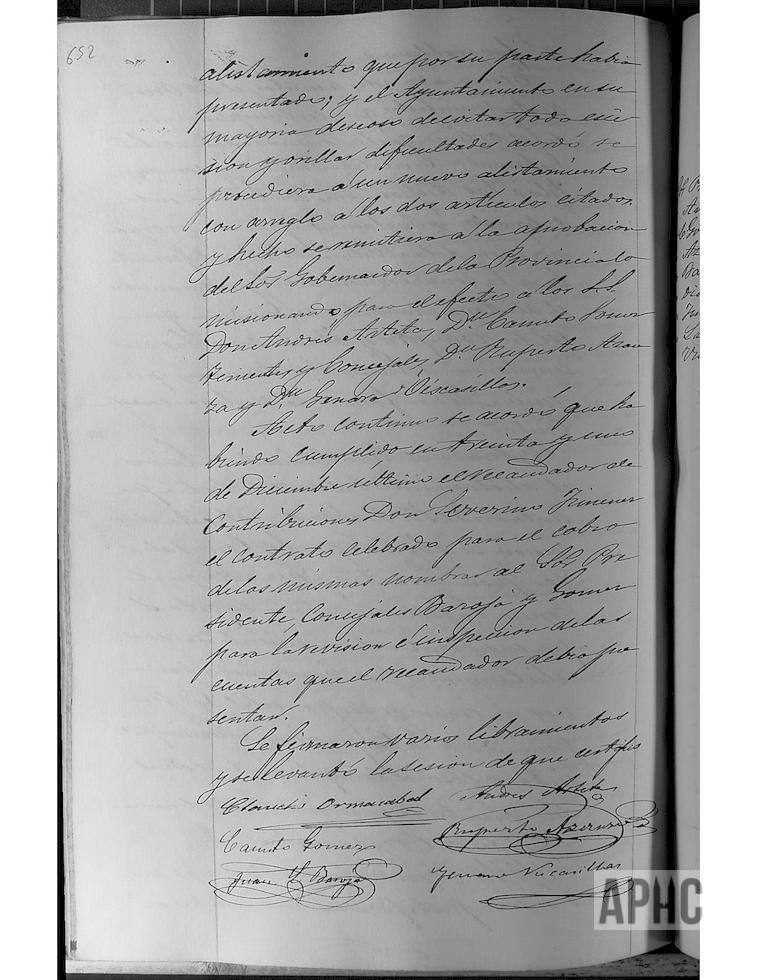 652
alistamiento que por su parte habia
presentado; y el Ayuntamiento en su
mayoria deseoso de evitar toda
sion y orillar dificultades acordó se
procediera á un nuevo alistamiento
con arreglo á los dos articulos citados,
y hecho se remitiera á la aprobacion
del Sor Gobernador de la Provincia co
misionando para el efecto á los S.S.
Don Andres Arteta, Dn Canuto Gomez
Tenientes y Concejales Dn Ruperto Azan
za y Dn Genaro Viscasillas.
Acto continuo se acordó que ha
biendo cumplido en treinta y uno
de Diciembre último el recaudador de
Contribuciones Don Severino Jimenez
el contrato celebrado para el cobro
de las mismas nombrar al Sor Pre
sidente, Concejales Baroja y Gomez
para la revision é inspeccion de las
cuentas que el recaudador debia pre
sentar.
Se firmaron varios libramientos
y se levantó la sesion de que certifico
Ormazabal Andres Arteta
Canuto Gomez Ruperto Azanza
Juan Baroja Genaro Viscasillas
APHC